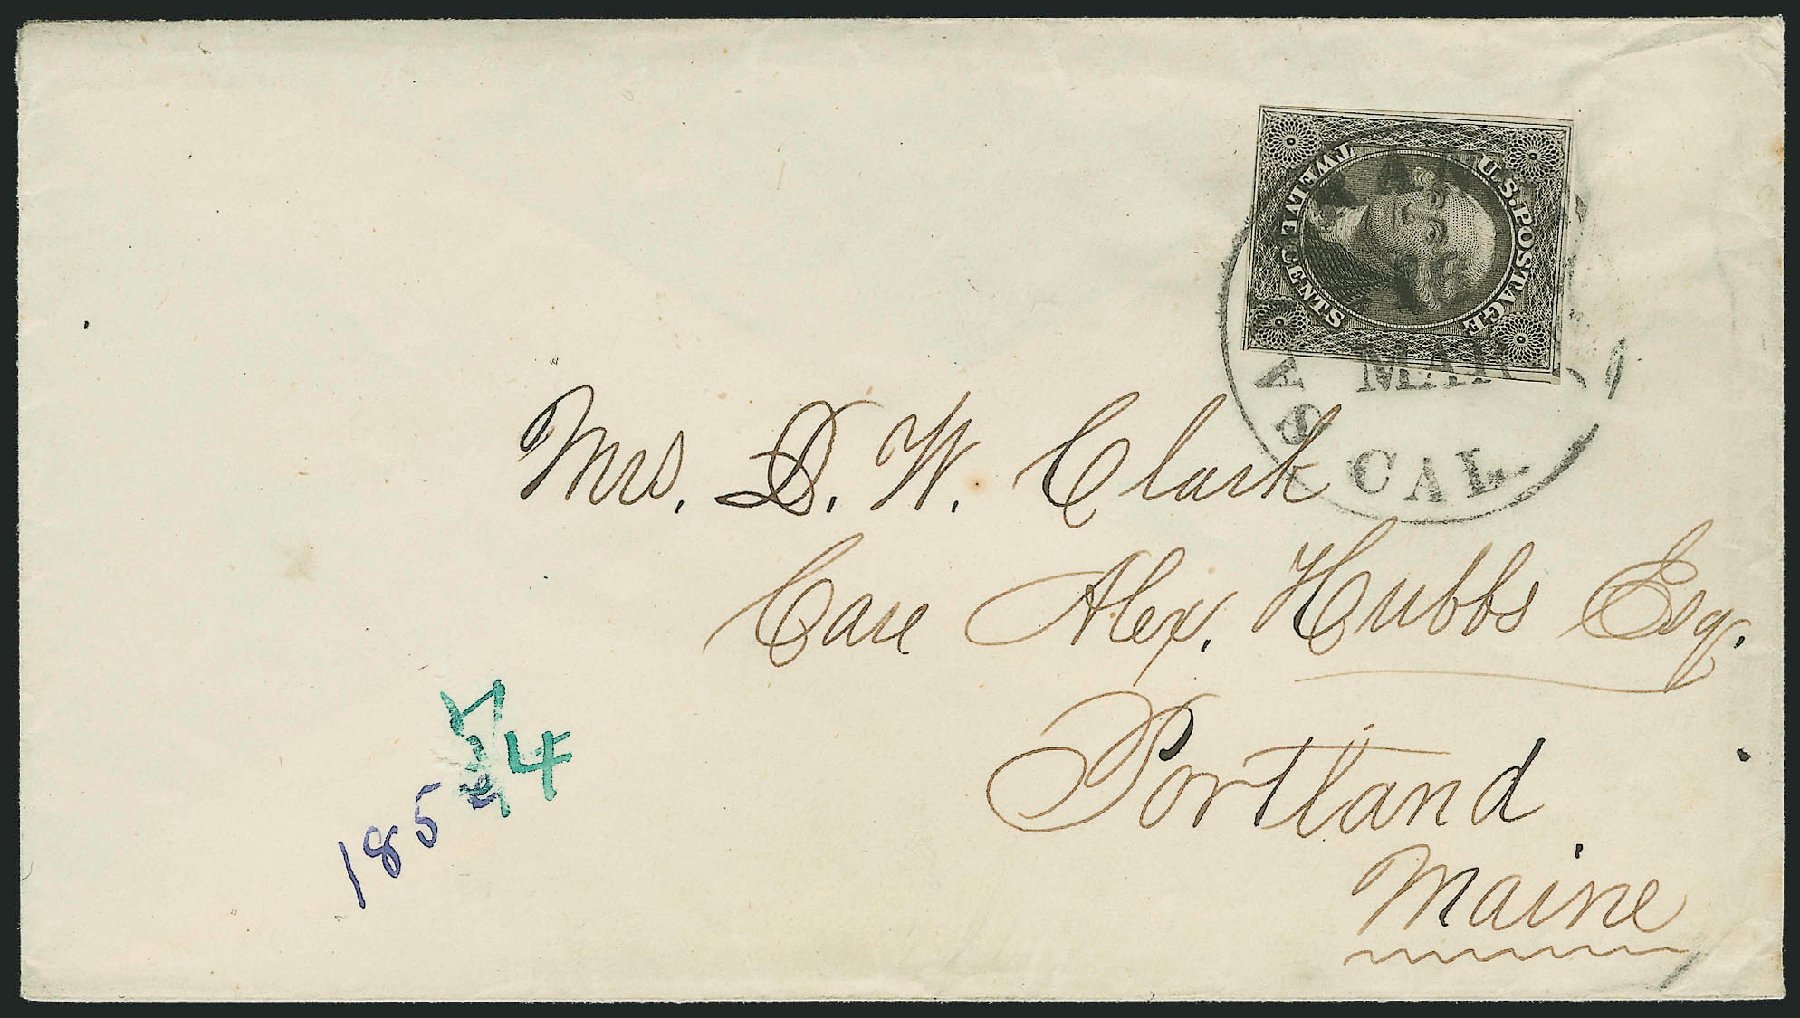 U.S. POSTAGE
TWELVE CENTS
MAR
CAL.
Mrs. D. W. Clark
Care Alex. Hubbs Esq.
Portland
Maine
185
4